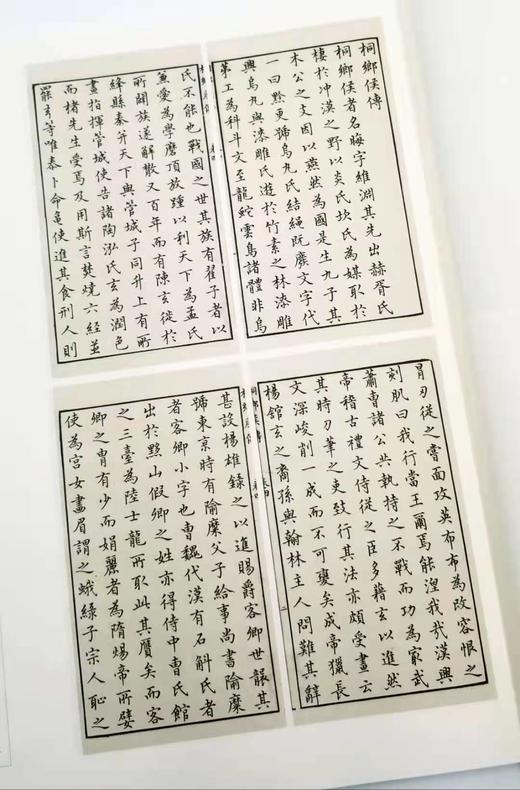 桐鄉侯傳
桐鄉侯者名晦字維淵其先出赫胥氏
棲於冲漠之野以炎氏坎氏為媒取於
木公之支因以燕然為國是生九子其
一曰黔更號烏丸氏結繩旣廢文字代
興烏丸與漆雕氏遊於竹素之林漆雕
第工為科斗文至龍蛇雲鳥諸體非烏
氏不能也戰國之世其族有翟子者以
兼愛為學摩頂放踵以利天下為孟氏
所闢族遂解散又百年而有陳玄徙於
絳縣秦并天下與管城子同升上有所
畫指揮管城使告諸陶泓氏玄為潤色
而楮先生受焉及用斯言焚燒六經並
罷玄等唯泰卜命龜使進其食刑人則
冐刃從之嘗面攻英布布為改容恨之
刻肌曰我行當王爾焉能湼我哉漢興
蕭曹諸公共執持之不戰而功為冣武
帝稽古禮文侍從之臣多藉玄以進然
其時刀筆之吏致行其法亦頗受畫云
文深峻削一成而不可變矣成帝獵長
楊館玄之裔孫與翰林主人問難其辭
桐鄉侯傳
二
甚設楊雄錄之以進賜爵客卿世襲其
號東京時有隃糜父子給事尚書隃糜
者客卿小字也曹魏代漢有石斛氏者
出於黟山假卿之姓亦得侍中曹氏館
之三臺為陸士龍所取此其贋矣而客
卿之胄有少而娟麗者為隋煬帝所嬖
使為宮女畫眉謂之蛾綠子宗人恥之